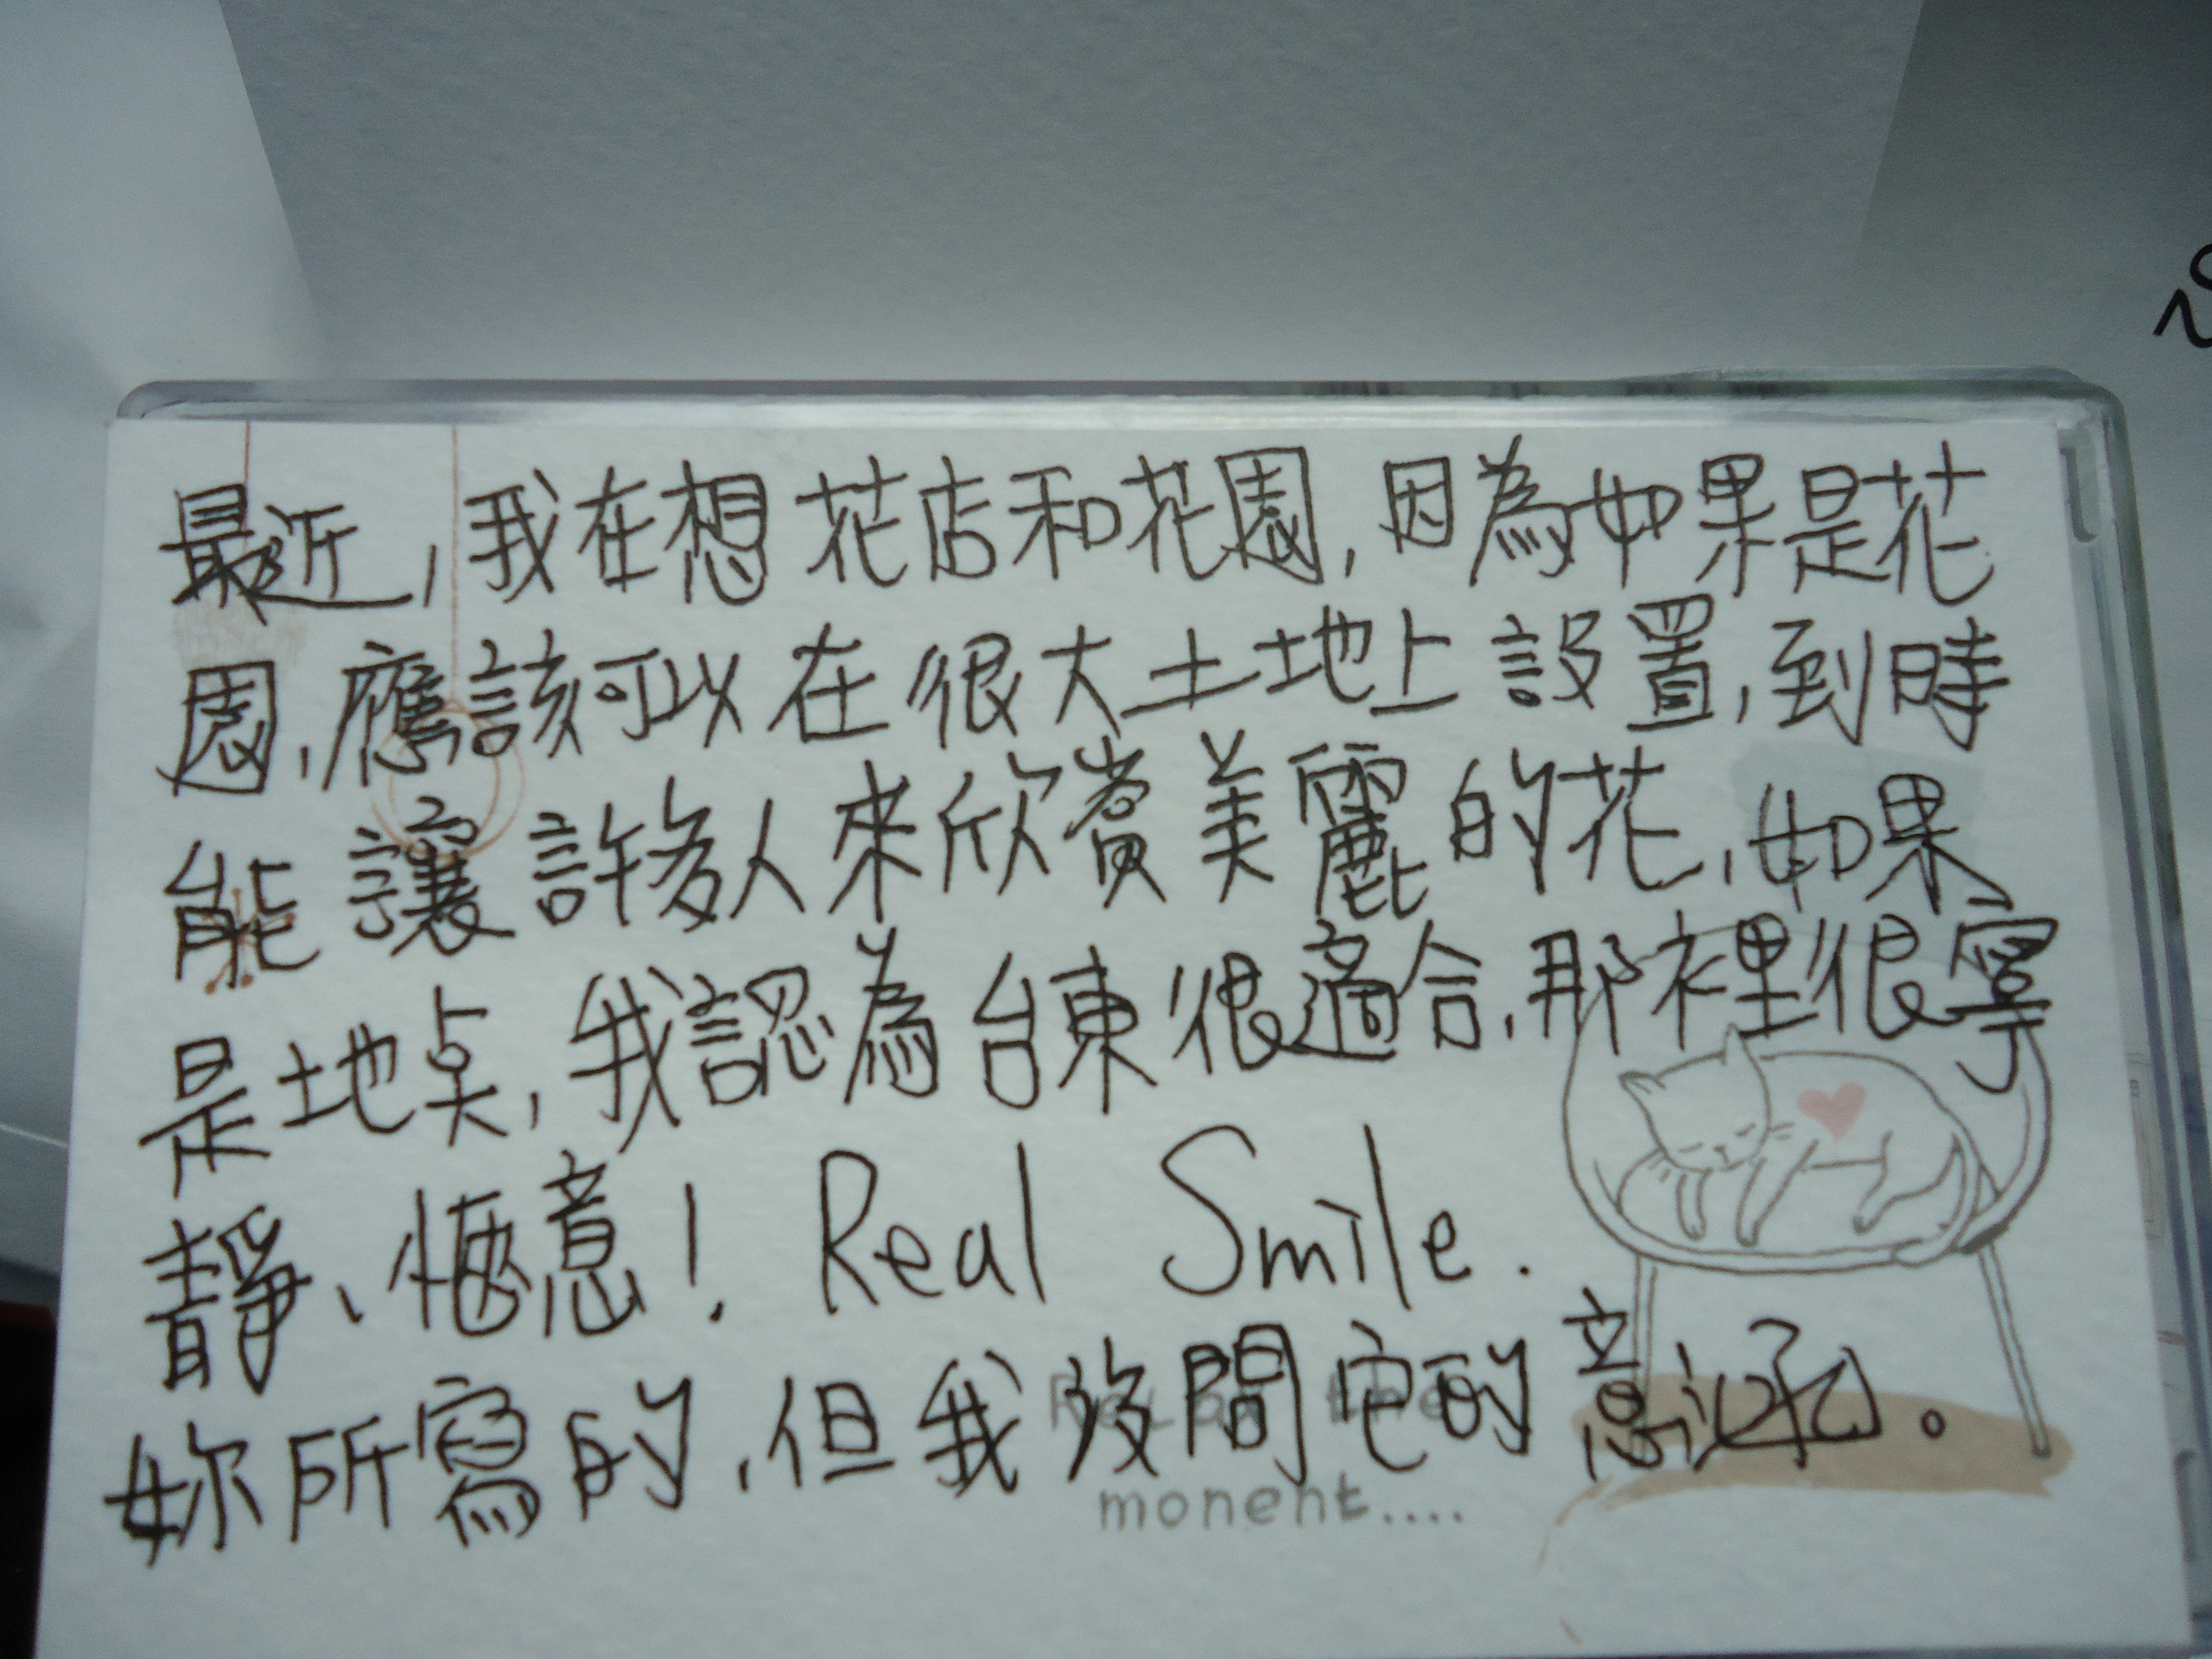 最近,我在想花店和花園,因為如果是花
園,應該可以在很大土地上設置,到時
能讓許多人來欣賞美麗的花,如果
是地點,我認為台東很適合,那裡很寧
靜、愜意! Real Smile.
妳所寫的,但我沒問它的意涵。
Relax the
monent....